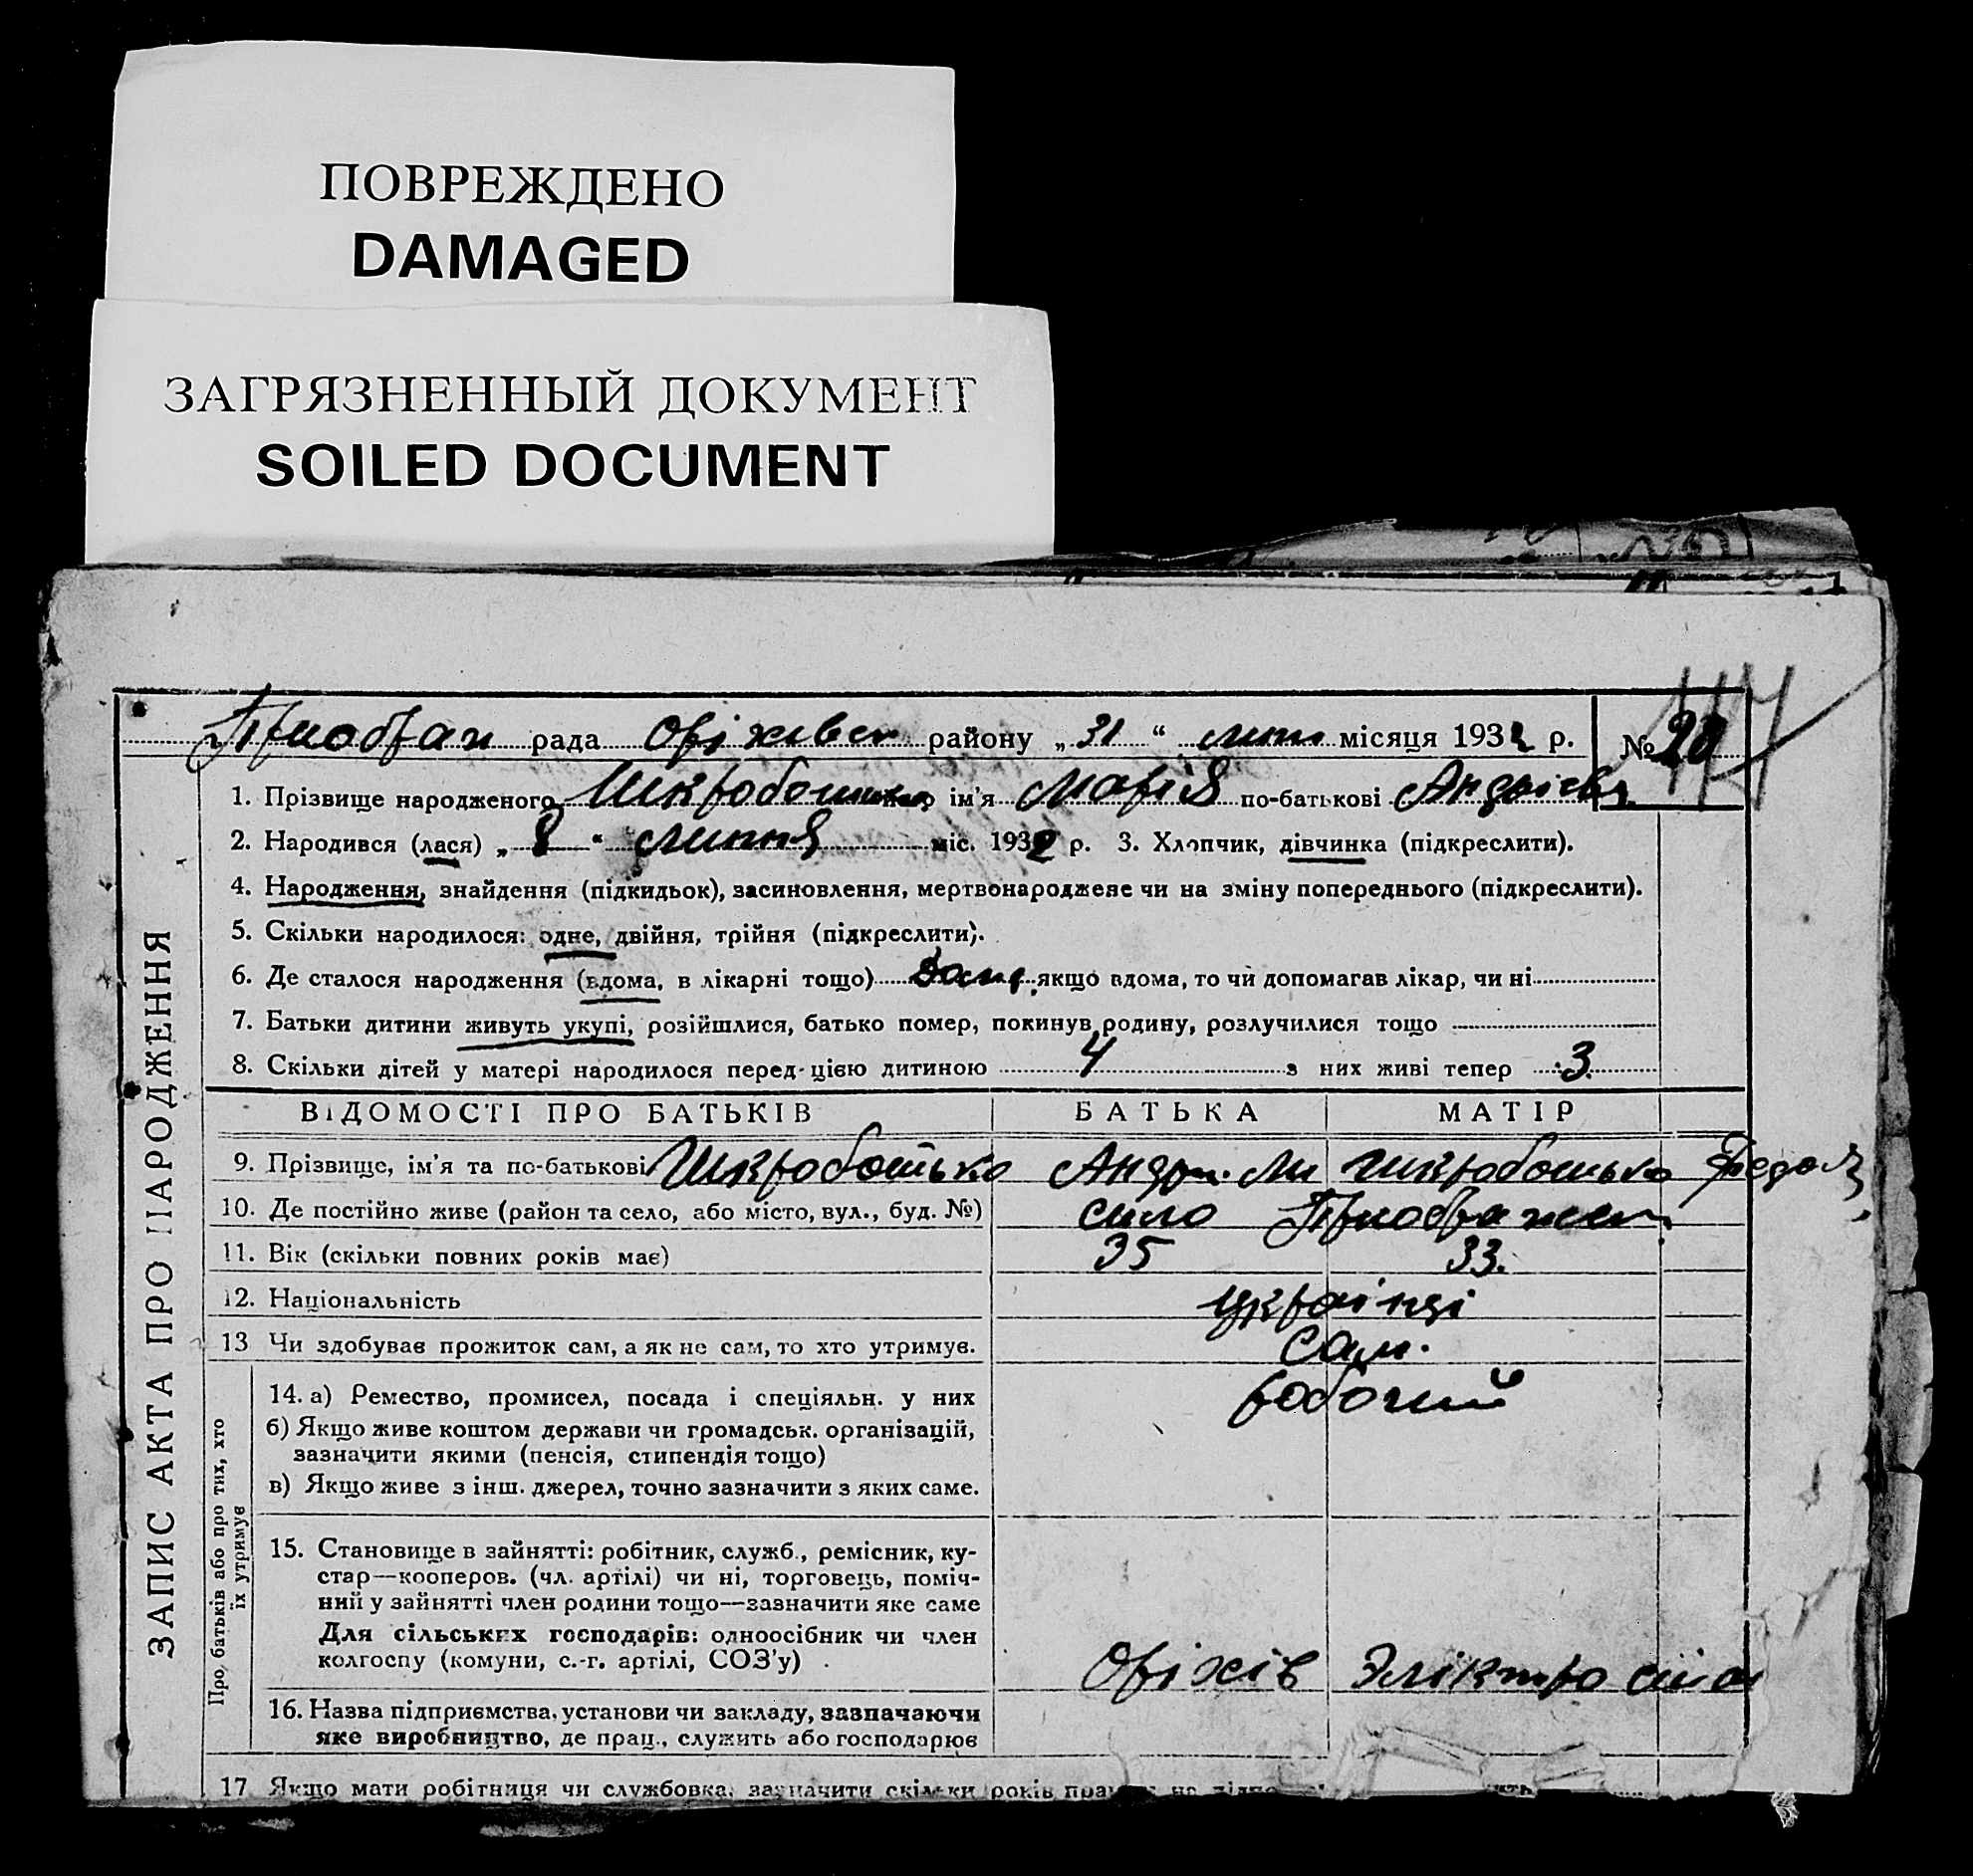 ПОВРЕЖДЕНО
DAMAGED
ЗАГРЯЗНЕННЫЙ ДОКУМЕНТ
SOILED DOCUMENT
Приображ рада Оріхівськ району „ 31 “ лип місяця 1932 р. № 20
1. Прізвище народженого ім'я Марія по-батькові Андрієвн
2. Народився (лася) „ 8 “ липня міс. 1932 р. 3. Хлопчик, дівчинка (підкреслити).
4. Народження, знайдення (підкидьок), засиновлення, мертвонароджене чи на зміну попереднього (підкреслити).
5. Скільки народилося: одне, двійня, трійня (підкреслити).
6. Де сталося народження (вдома, в лікарні тощо) якщо вдома, то чи допомагав лікар, чи ні
7. Батьки дитини живуть укупі, розійшлися, батько помер, покинув родину, розлучилися тощо
8. Скільки дітей у матері народилося перед-цією дитиною 4 з них живі тепер 3.
ЗАПИС АКТА ПРО НАРОДЖЕННЯ
ВІДОМОСТІ ПРО БАТЬКІВ БАТЬКА МАТІР
9. Прізвище, ім'я та по-батькові Шкробошько Андр. Ми шкробошько
10. Де постійно живе (район та село, або місто, вул., буд. №) село
11. Вік (скільки повних років має) 35 33.
12. Національність українці
13 Чи здобував прожиток сам, а як не сам, то хто утримує. сам.
Про батьків або про тих, хто їх утримує
14. а) Ремество, промисел, посада і спеціяльн. у них робочий
б) Якщо живе коштом держави чи громадськ. організацій,
зазначити якими (пенсія, стипендія тощо)
в) Якщо живе з інш. джерел, точно зазначити з яких саме.
15. Становище в зайнятті: робітник, служб., ремісник, ку-
стар—кооперов. (чл. артілі) чи ні, торговець, поміч-
ний у зайнятті член родини тощо—зазначити яке саме
Для сільських господарів: одноосібник чи член
колгоспу (комуни, с.-г. артілі, СОЗ'у) Оріхів
16. Назва підприємства, установи чи закладу, зазначаючи
яке виробництво, де прац., служить або господарює
17 Якщо мати робітниця чи службовка, зазначити скільки років